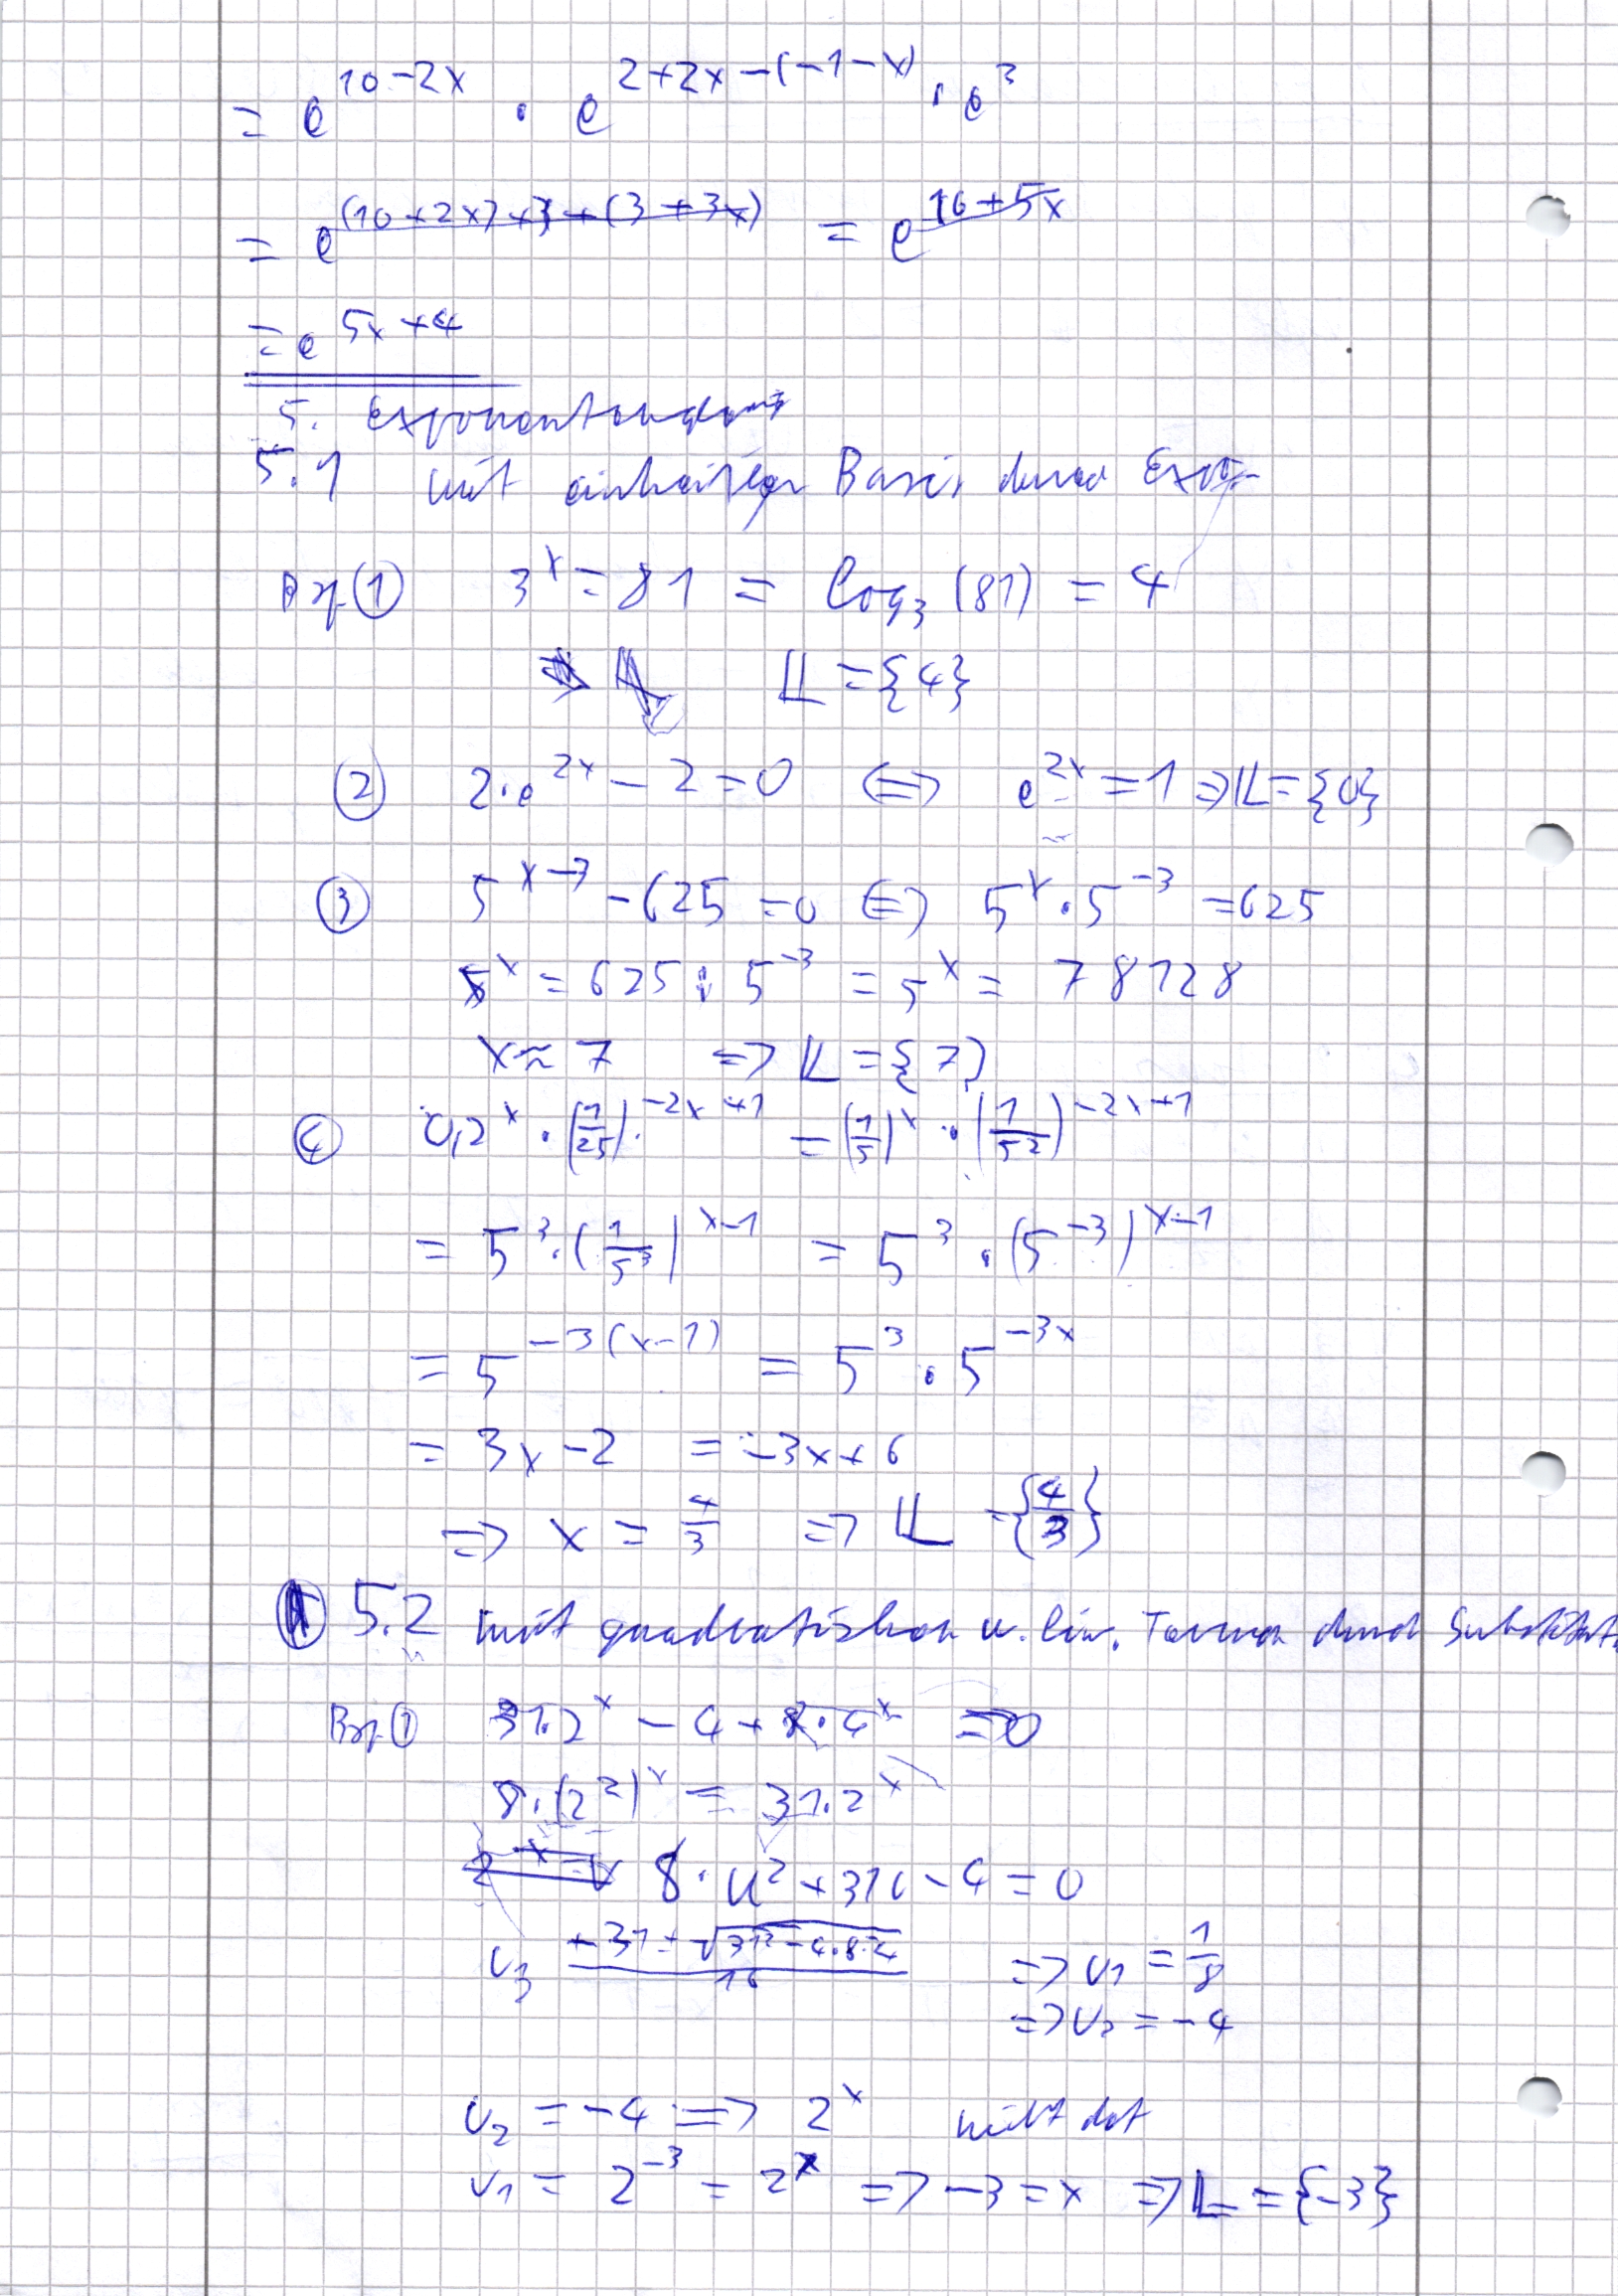 = e^(10-2x) · e^(2+2x-(-1-x)) · e^3
= e^((10+2x)+3+(3+3x)) = e^(16+5x)
= e^(5x+4)
5.
5.1 mit einheitlicher Basis durch Exp.
Bsp. ① 3^x = 81 = log_3 (81) = 4
𝕃 = {4}
② 2·e^(2x) - 2 = 0 ⇔ e^(2x) = 1 ⇒ 𝕃 = {0}
③ 5^(x-3) - 625 = 0 ⇔ 5^x · 5^(-3) = 625
5^x = 625 : 5^(-3) = 5^x = 78128
x ≈ 7 ⇒ 𝕃 = {7}
④ 0,2^x · (1/25)^(-2x+1) = (1/5)^x · (1/5^2)^(-2x+1)
= 5^3 · (1/5^3)^(x-1) = 5^3 · (5^(-3))^(x-1)
= 5^(-3(x-1)) = 5^3 · 5^(-3x)
= 3x - 2 = -3x + 6
⇒ x = 4/3 ⇒ 𝕃 = {4/3}
5.2 mit quadratischen u. lin. Termen durch Substitut
Bsp. ① 31·2^x - 4 + 8·4^x = 0
8·(2^2)^x = 31·2^x
8·u^2 + 31u - 4 = 0
+31 ± √(31^2-4·8·4) / 16 ⇒ u_1 = 1/8
⇒ u_2 = -4
u_2 = -4 ⇒ 2^x nicht def
u_1 = 2^(-3) = 2^x ⇒ -3 = x ⇒ 𝕃 = {-3}